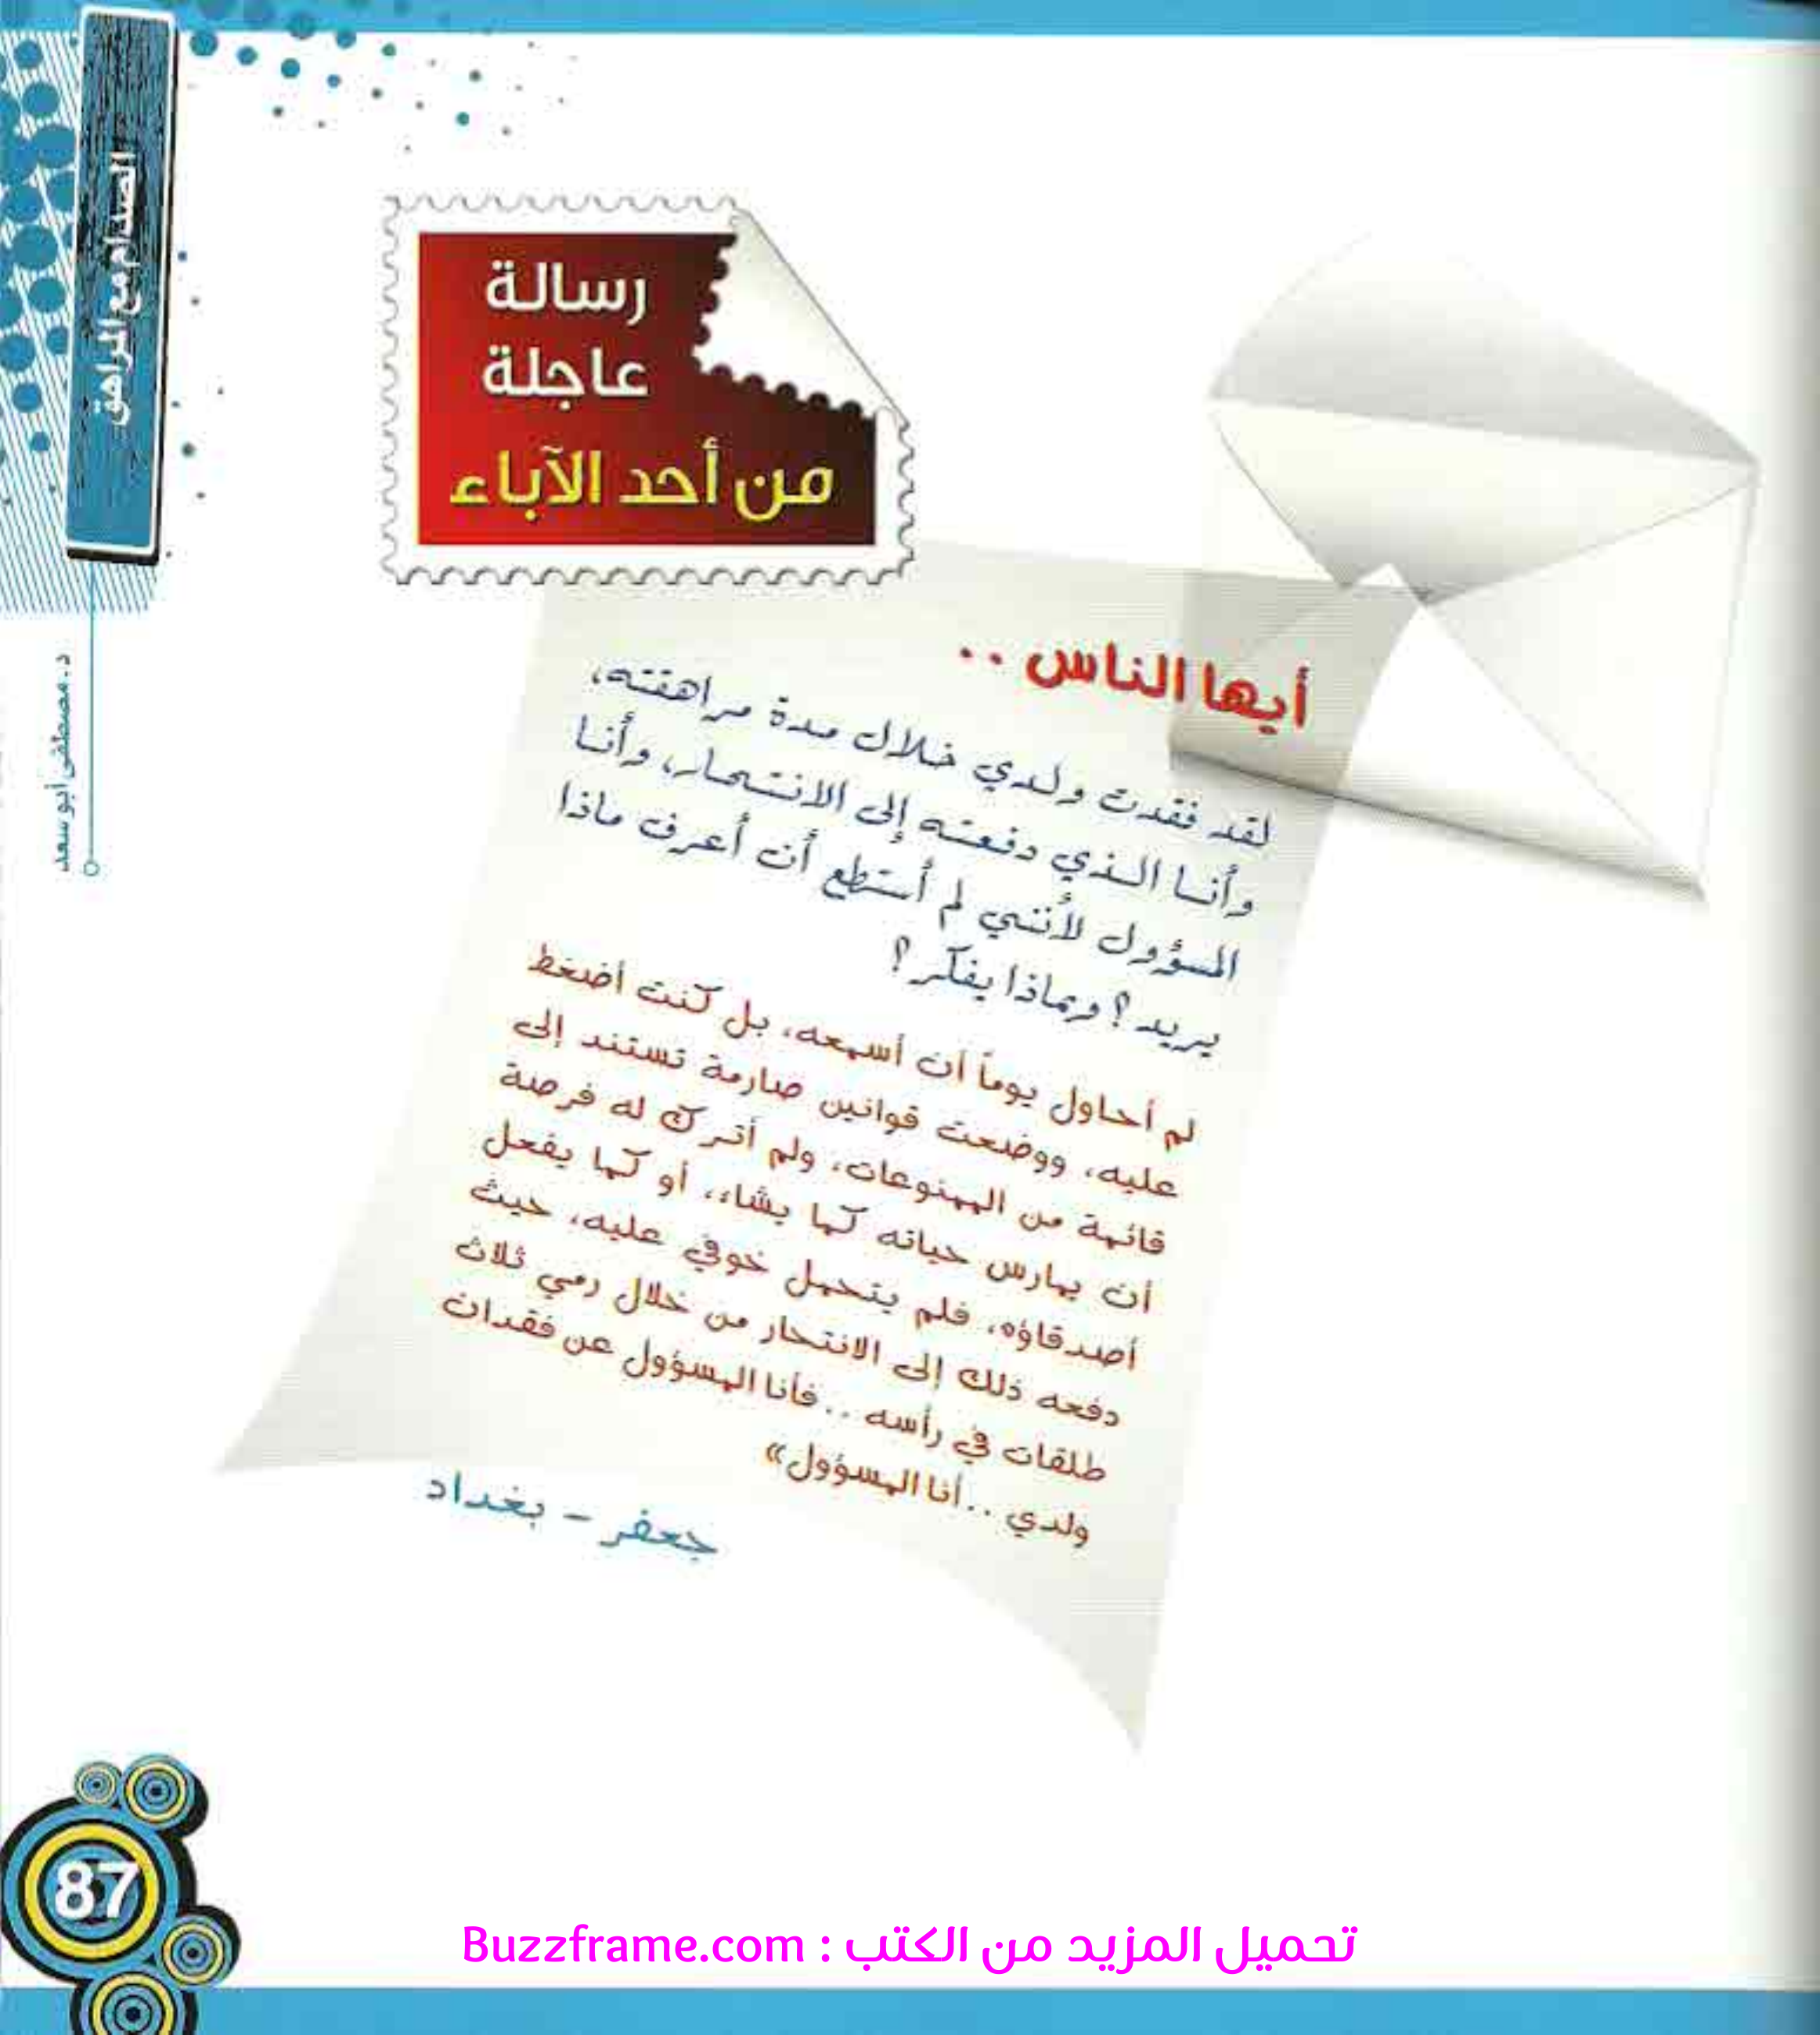 الصدام مع المراهق
د. مصطفى أبو سعد
رسالة
عاجلة
من أحد الآباء
أيها الناس ..
لقد فقدت ولدي خلال مدة مراهقته،
وأنا الذي دفعته إلى الانتحار، وأنا
المسؤول لأنني لم أستطع أن أعرف ماذا
يريد؟ وبماذا يفكّر؟
لم أحاول يوماً أن أسمعه، بل كنت أضغط
عليه، ووضعت قوانين صارمة تستند إلى
قائمة من الممنوعات، ولم أترك له فرصة
أن يمارس حياته كما يشاء، أو كما يفعل
أصدقاؤه، فلم يتحمل خوفي عليه، حيث
دفعه ذلك إلى الانتحار من خلال رمي ثلاث
طلقات في رأسه .. فأنا المسؤول عن فقدان
ولدي .. أنا المسؤول»
جعفر - بغداد
87
تحميل المزيد من الكتب : Buzzframe.com